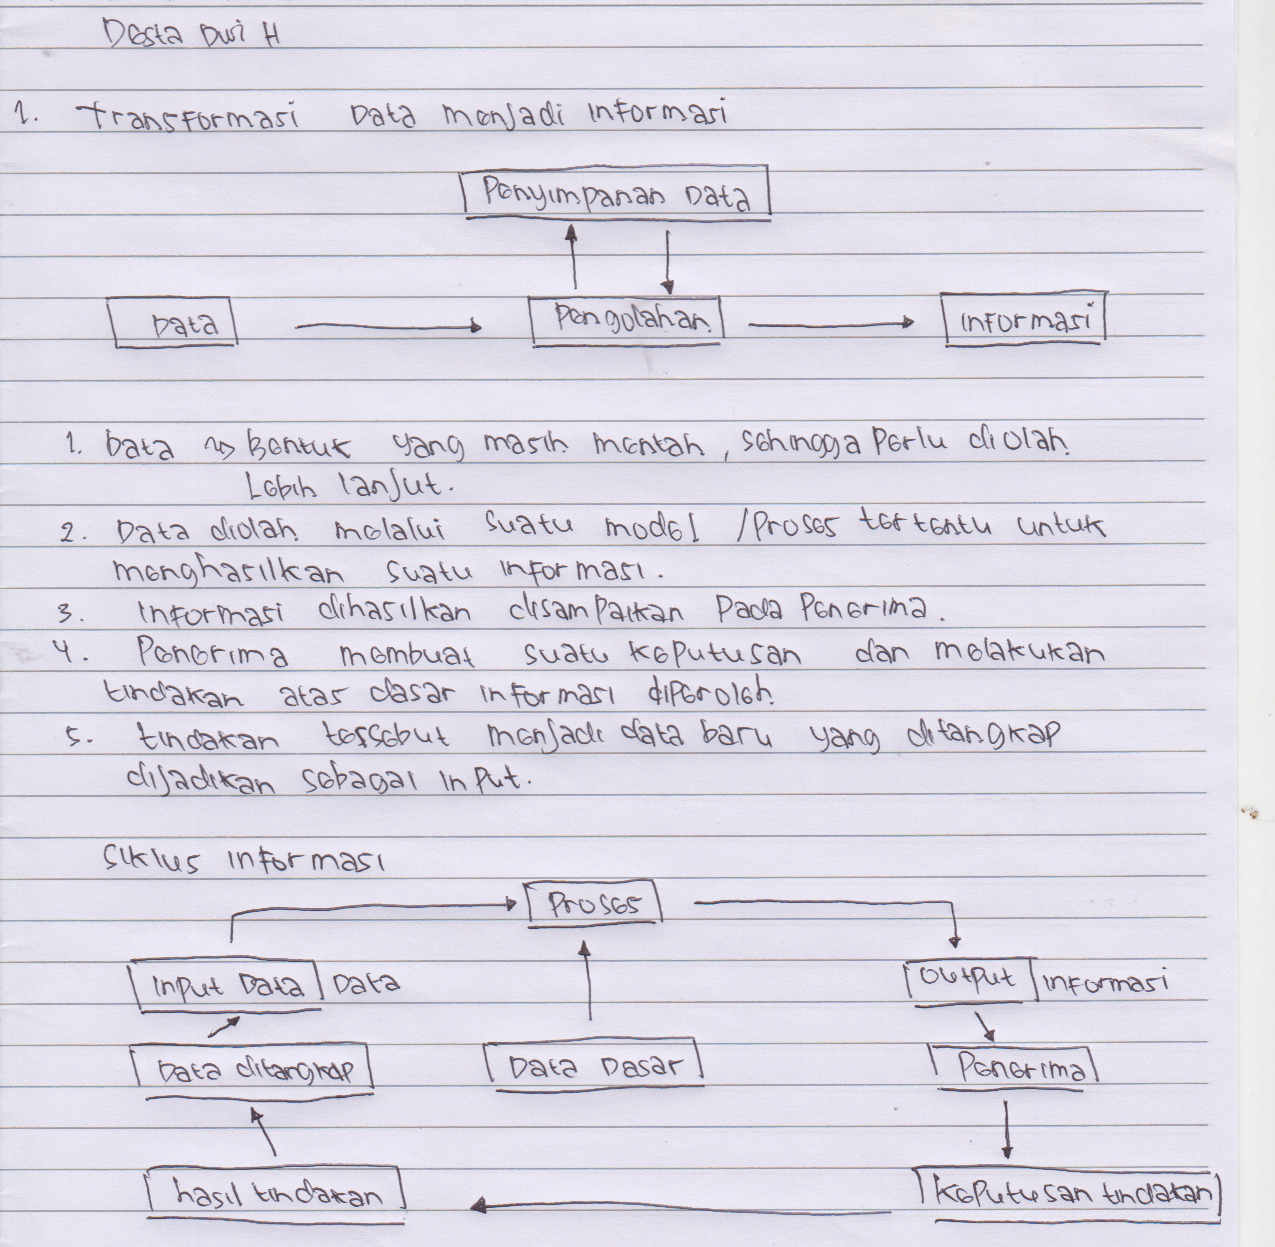 Desta Dwi H
1. Transformasi Data menjadi informasi
Penyimpanan Data
Data Pengolahan informasi
1. Data ⇝ Bentuk yang masih mentah, sehingga Perlu diolah
Lebih lanjut.
2. Data diolah melalui suatu model / Proses tertentu untuk
menghasilkan suatu informasi.
3. informasi dihasilkan disampaikan Pada Penerima.
4. Penerima membuat suatu keputusan dan melakukan
tindakan atas dasar informasi diperoleh
5. tindakan tersebut menjadi data baru yang ditangkap
dijadikan sebagai input.
Siklus informasi
Proses
Input Data Data Output informasi
Data ditangkap Data Dasar Penerima
hasil tindakan Keputusan tindakan